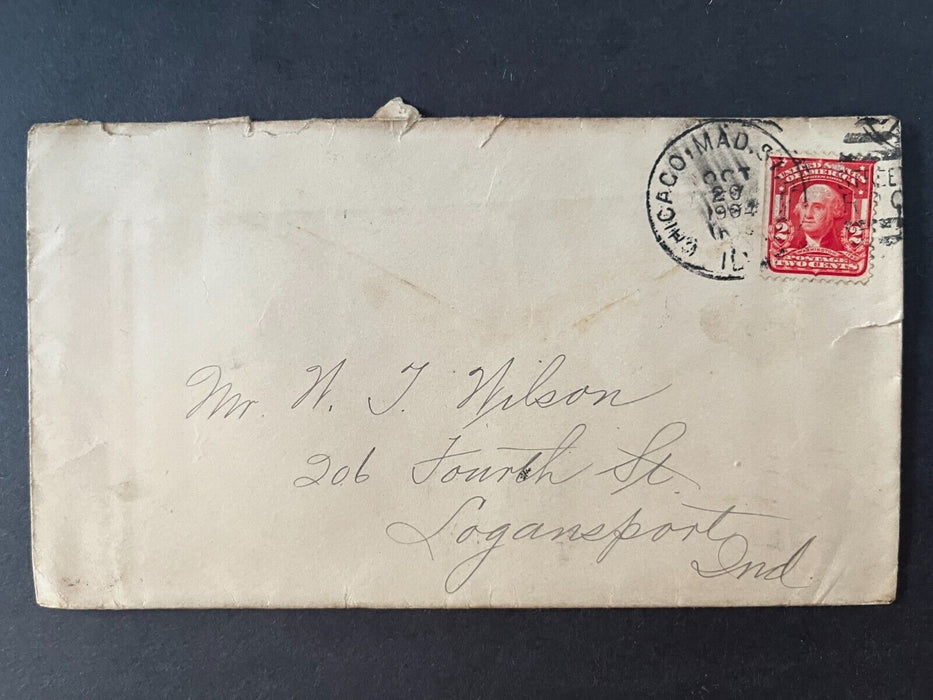 CHICAGO, MAD. S
OCT
20
1904
ILL
UNITED STATES
OF AMERICA
2 2
POSTAGE
TWO CENTS
Mr. W. T. Wilson
206 Fourth St.
Logansport
Ind.